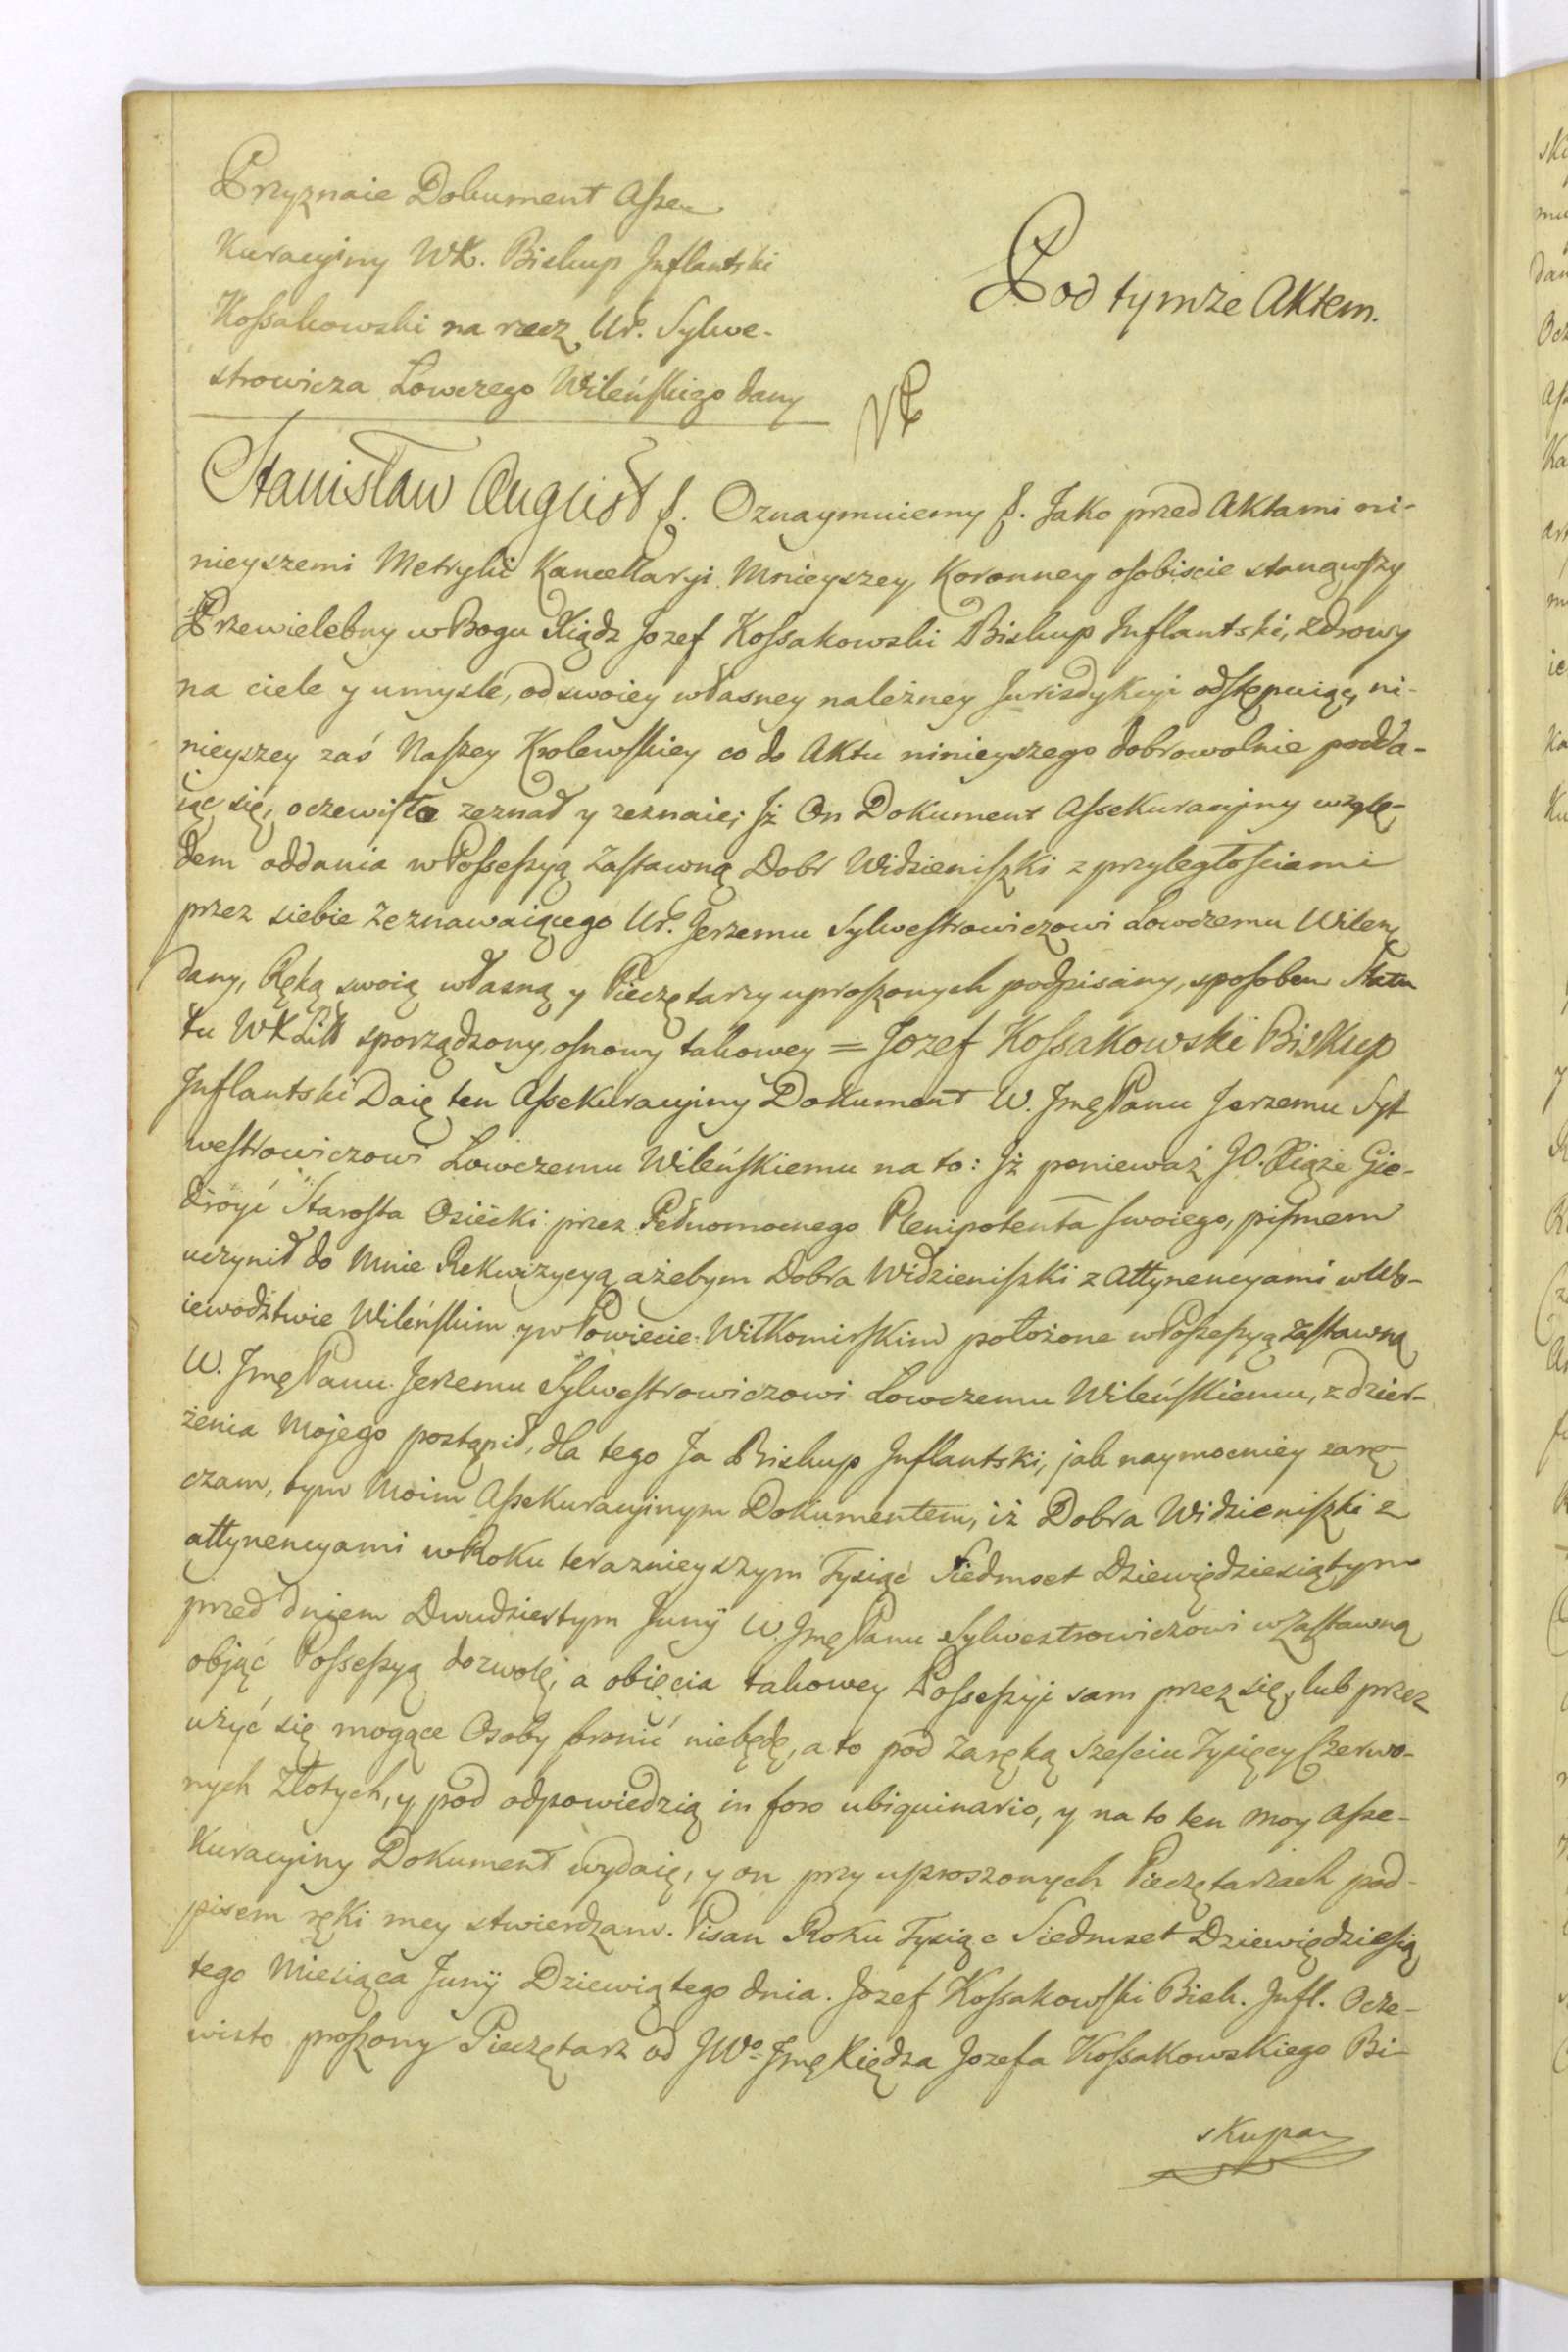 Przyznaie Dokument Asse
kuracyiny WX. Biskup Inflantski
Kossakowski na rzecz Ur. Sylwe-
strowicza Łowczego Wileńskiego dany
Pod tymże Aktem.
Stanisław August &. Oznaymuiemy &. Jako przed Aktami ni-
nieyszemi Metryki Kancellaryi Mnieyszey Koronney osobiscie stanąwszy
Przewielebny w Bogu Xiądz Jozef Kossakowski Biskup Inflantski, zdrowy
na ciele y umysle, od swoiey własney należney Jurisdykcyi odstępuiąc, ni-
nieyszey zaś Naszey Krolewskiey co do Aktu ninieyszego dobrowolnie podda-
iąc się, oczewisto zeznał y zeznaie; Iż On Dokument Assekuracyiny wzglę-
dem oddania w Possessyą Zastawną Dobr Widzieniszki z przyległościami
przez siebie Zeznawaiącego Ur. Jerzemu Sylwestrowiczowi Łowczemu Wileń
dany, Ręką swoią własną y Pieczętarzy uproszonych podpisany, sposobem Statu
tu WXLitt sporządzony, osnowy takowey = Jozef Kossakowski Biskup
Inflantski Daię ten Assekuracyiny Dokument W. Jmę Panu Jerzemu Syl
westrowiczowi Łowczemu Wileńskiemu na to: Iż ponieważ JO. Xiąże Gie-
droyć Starosta Osiecki przez Pełnomocnego Plenipotenta swoiego, pismem
uczynił do Mnie Rekwizycyą ażebym Dobra Widzieniszki z Attynencyami w Wo-
iewodztwie Wileńskim y w Powiecie Wiłkomirskim położone w Possessyą Zastawną
W. Jmę Panu Jerzemu Sylwestrowiczowi Łowczemu Wileńskiemu, z dzier-
żenia Mojego postąpił, dla tego Ja Biskup Inflantski, jak naymocniey zarę
czam, tym Moim Assekuracyinym Dokumentem, iż Dobra Widzieniszki z
attynencyami w Roku teraznieyszym Tysiąć Siedmset Dziewiędziesiątym
przed dniem Dwudziestym Junÿ W. Jmę Panu Sylwestrowiczowi w Zastawną
objąć Possessyą dozwolę, a obięcia takowey Possessyi sam przez się, lub przez
użyć się mogące Osoby bronić niebędę, a to pod Zaręką Sześciu Tysięcy Czerwo-
nych Złotych, y pod odpowiedzią in foro ubiquinario, y na to ten moy Asse-
kuracyiny Dokument wydaię, y on przy uproszonych Pieczętarzach pod-
pisem ręki mey stwierdzam. Pisan Roku Tysiąc Siedmset Dziewiędziesią
tego Miesiąca Junÿ Dziewiątego dnia. Jozef Kossakowski Bisk. Infl. Ocze-
wisto proszony Pieczętarz od JWo Jmę Xiędza Jozefa Kossakowskiego Bi-
skupa